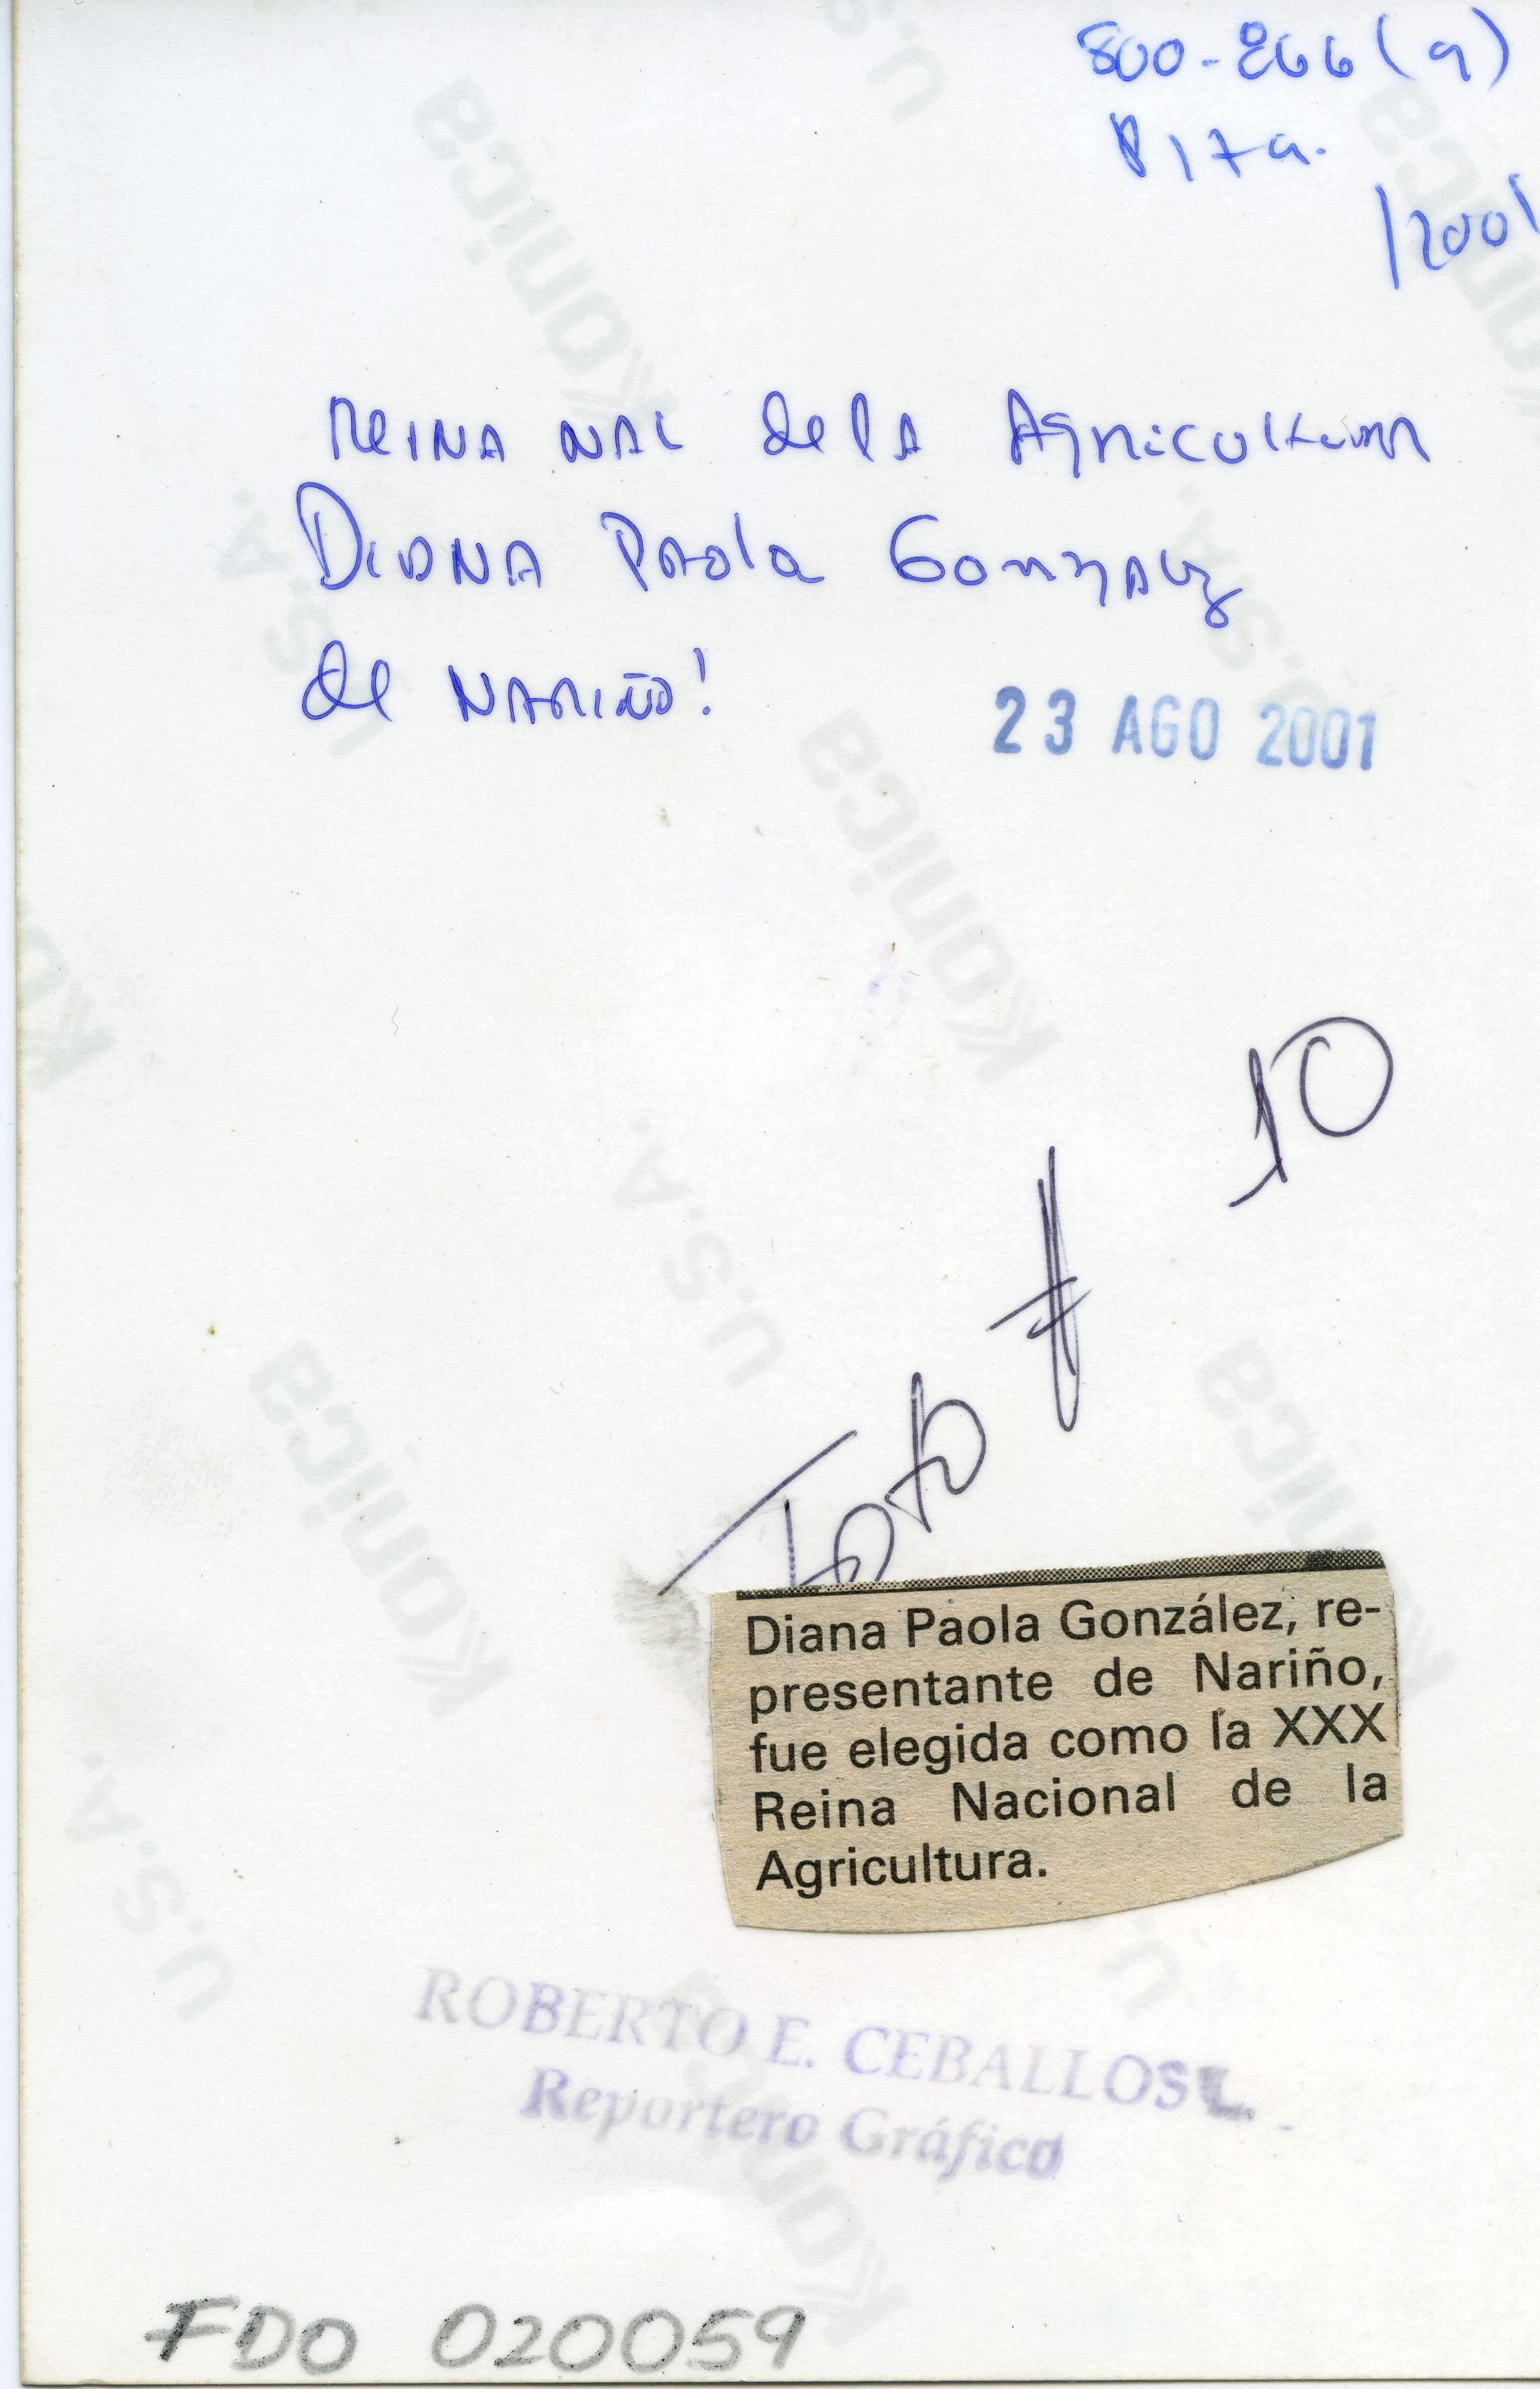 800-266 (9)
P 17a.
/2001
REINA NAL de lA Agricultura
DiANA PAola GonzALez
de NARIÑO!
23 AGO 2001
Foto # 10
Diana Paola González, re-
presentante de Nariño,
fue elegida como la XXX
Reina Nacional de la
Agricultura.
ROBERTO E. CEBALLOS L.
Reportero Gráfico
FDO 020059
Konica
U.S.A.